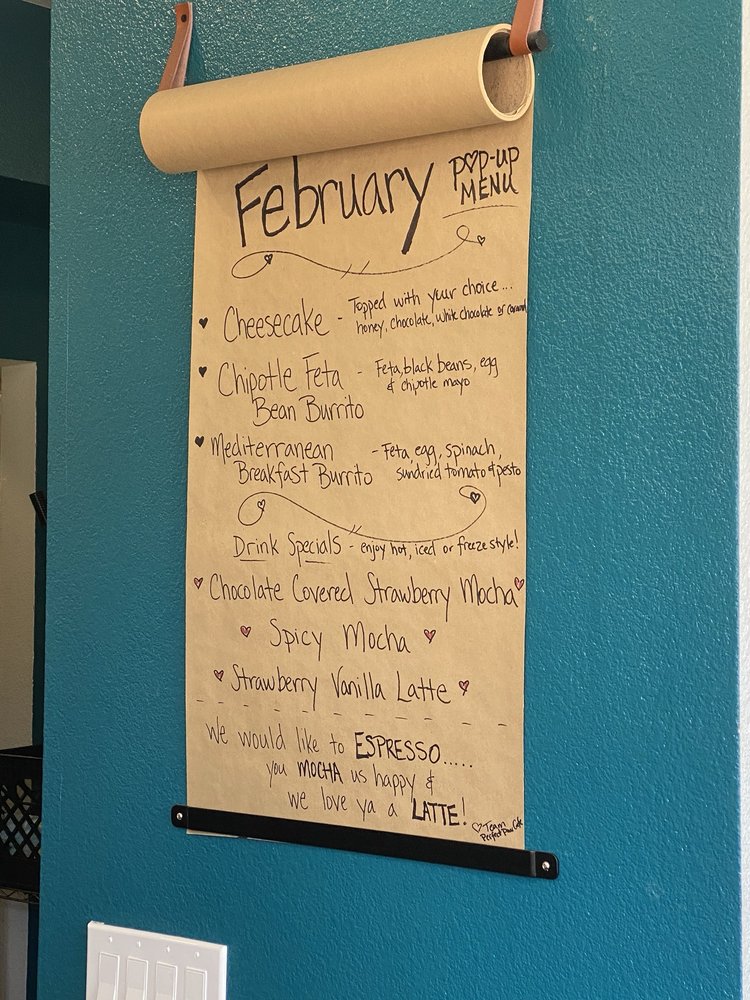 February
POP-UP
MENU
Cheesecake - Topped with your choice...
honey, chocolate, white chocolate or caramel
Chipotle Feta - Feta, black beans, egg
Bean Burrito & chipotle mayo
Mediterranean - Feta, egg, spinach,
Breakfast Burrito sundried tomato & pesto
Drink Specials - enjoy hot, iced or freeze style!
Chocolate Covered Strawberry Mocha
Spicy Mocha
Strawberry Vanilla Latte
We would like to ESPRESSO.....
you MOCHA us happy &
we love ya a LATTE!
Team
Perfect